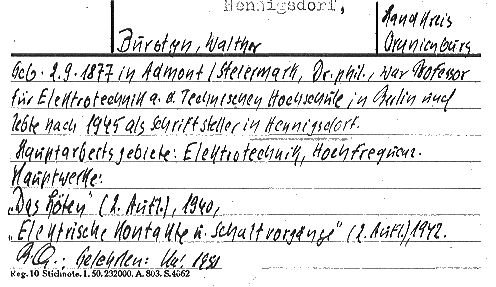 Hennigsdorf,
Landkreis
Oranienburg
Burstyn, Walther
Geb. 2.9.1877 in Admont/Steiermark, Dr. phil., war Professor
für Elektrotechnik a. d. Technischen Hochschule in Berlin und
lebte nach 1945 als Schriftsteller in Hennigsdorf.
Hauptarbeitsgebiete: Elektrotechnik, Hochfrequenz.
Hauptwerke:
„Das Löten" (2. Aufl.), 1940,
„Elektrische Kontakte u. Schaltvorgänge" (2. Aufl.), 1942.
Gelehrten: 1931
Reg. 10 Stichnote. I. 50. 232000. A. 803. S. 4662